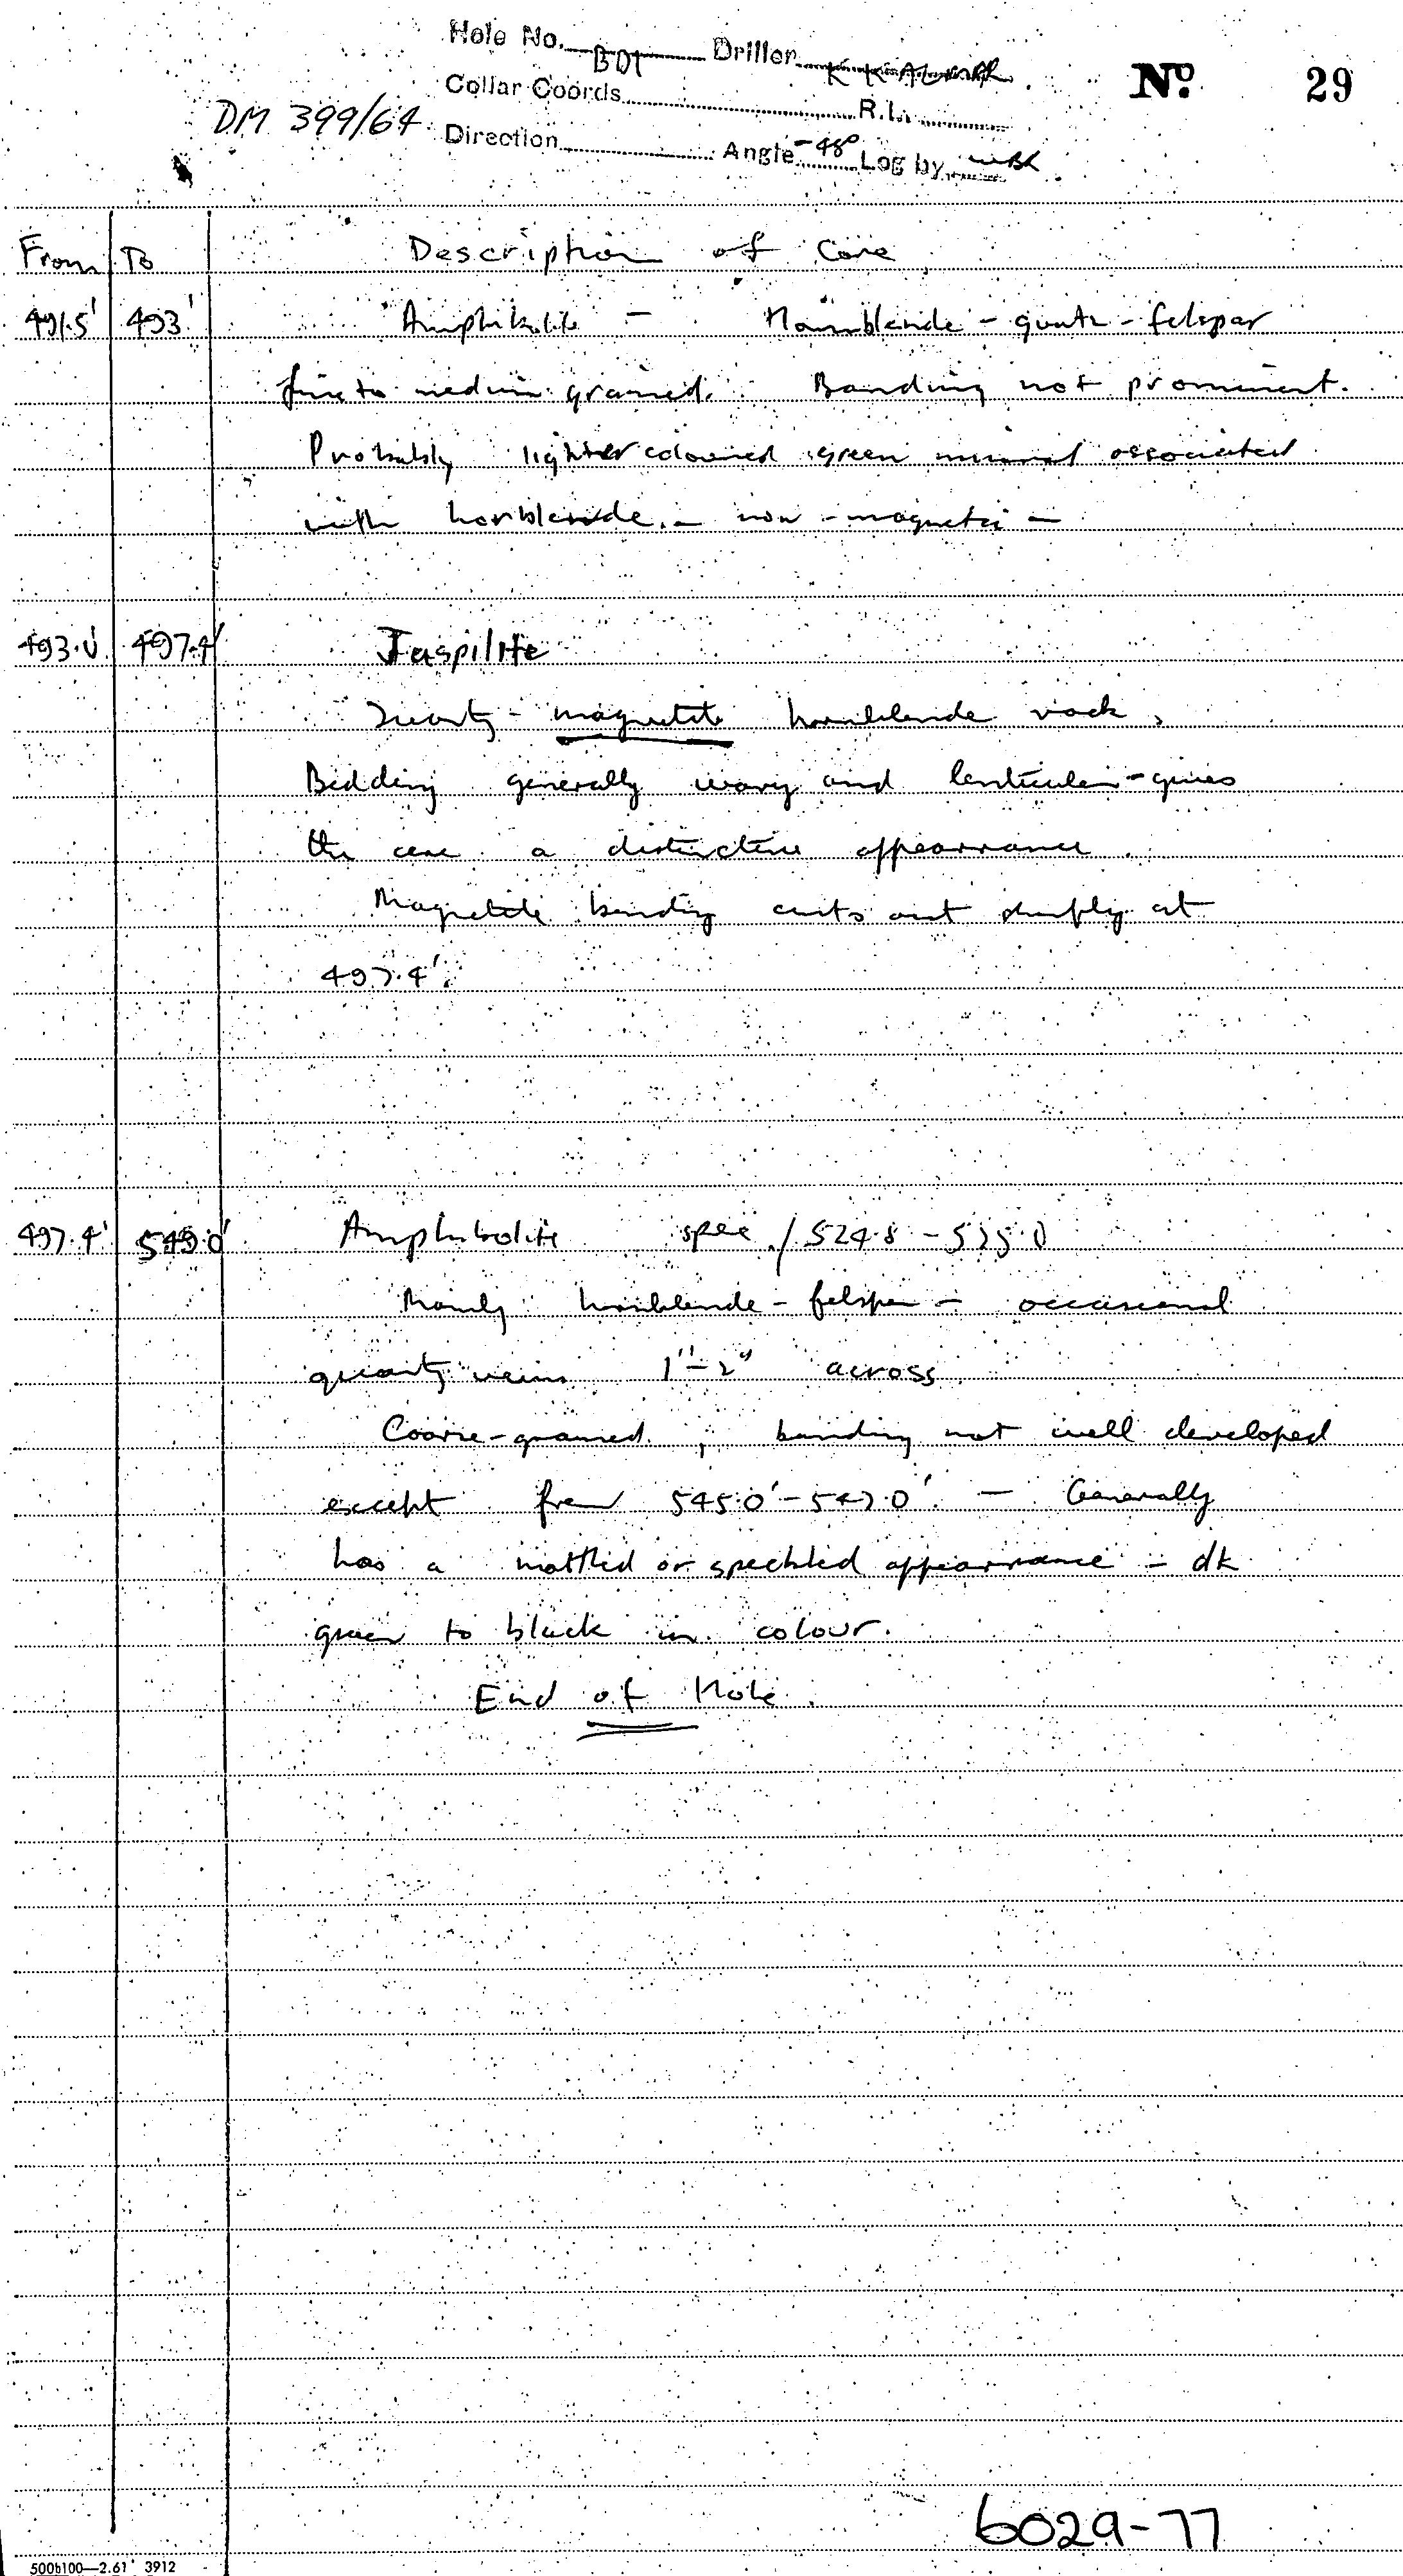 Hole No. BD1 Driller K K
Nº 29
Collar Coords R.L.
DM 399/64
Direction Angle -48° Log by
From To Description of Core
491.5' 493' Amphibolite - Hornblende - quartz - felspar
fine to medium grained. Banding not prominent.
Probably lighter coloured green mineral associated
with horblende. - non-magnetic -
493.0' 497.4' Jaspilite
Quartz - magnetite hornblende rock,
Bedding generally wavy and lenticular - gives
the core a distinctive appearance.
Magnetite banding cuts out sharply at
497.4'.
497.4' 549.0' Amphibolite spec / 524.8 - 525.0
Mainly hornblende - felspar - occasional
quartz veins 1"-2" across
Coarse-grained; banding not well developed
except from 545.0' - 547.0'. - Generally
has a mottled or speckled appearance - dk
green to black in colour.
End of Hole.
6029-77
500b100—2.61 3912